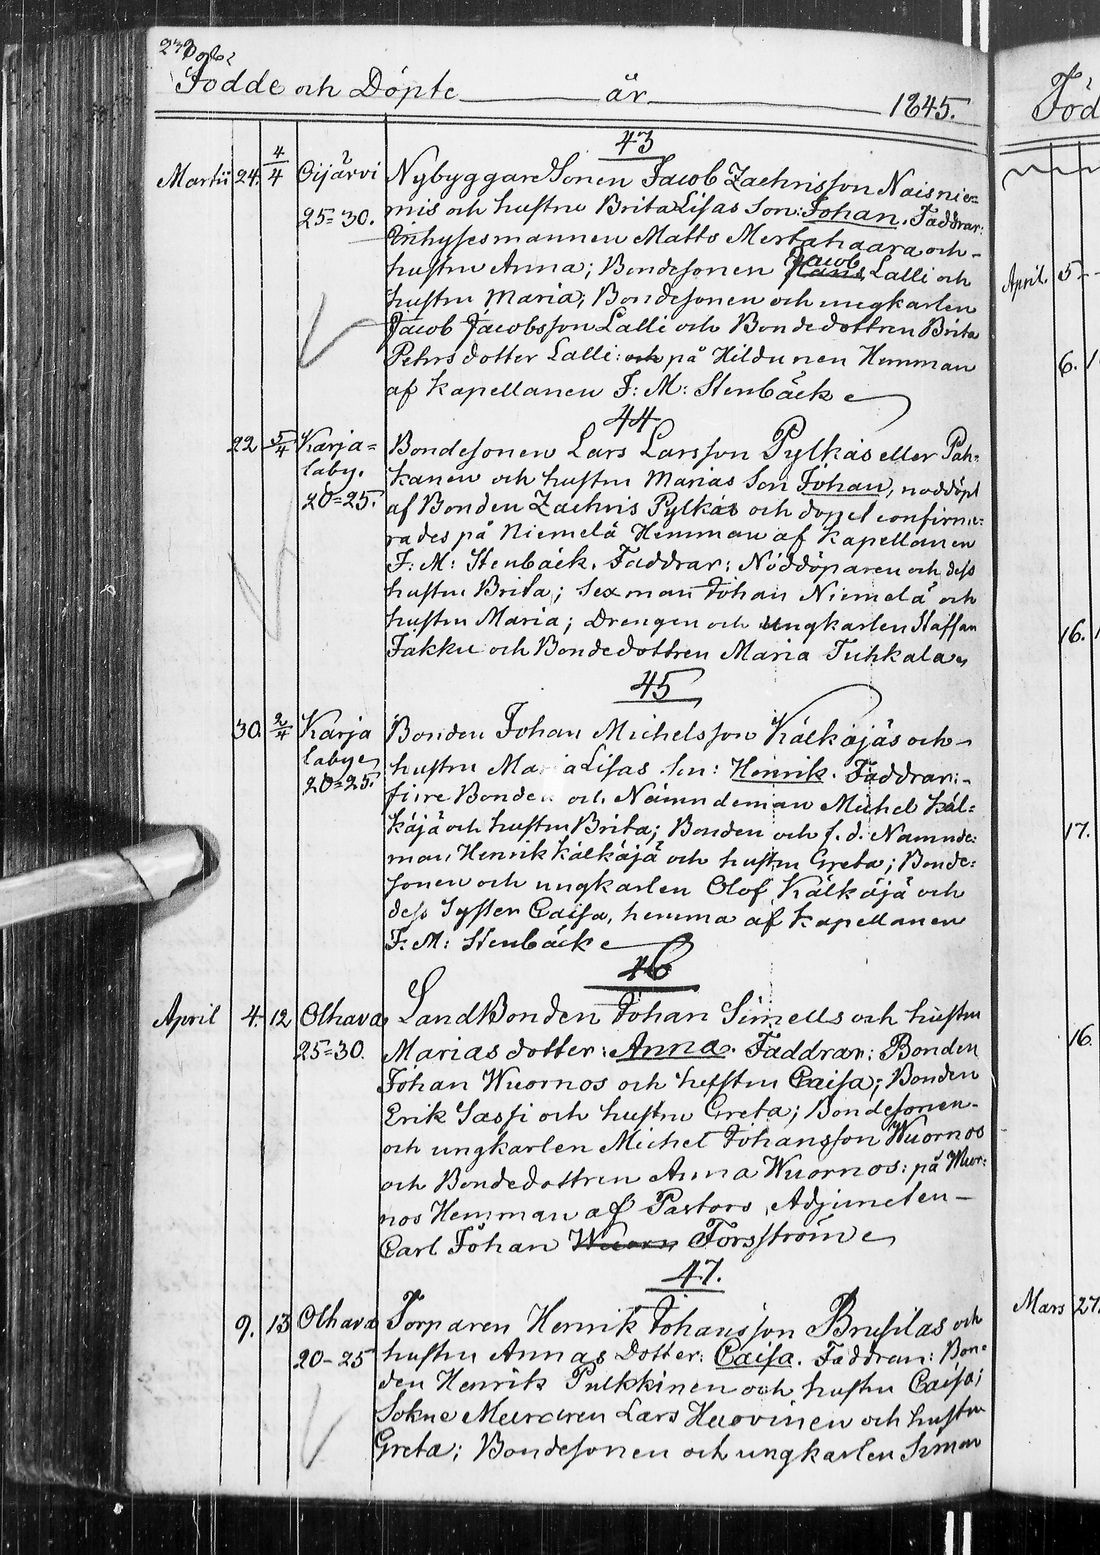 Födde och Döpte år 1845.
43
Martii 24. 4/4 Oijärvi Nybyggare Sonen Jacob Zachrisson Naisnie=
25=30. mis och hustru Brita Lisas Son: Johan. Faddrar:
Inhysesmannen Matts Mertahaara och
hustru Anna; Bondesonen Jacob Lalli och
hustru Maria; Bondesonen och ungkarlen
Jacob Jacobsson Lalli och Bondedottren Brita
Pehrsdotter Lalli: och på Hildunen Hemman
af Kapellanen J: M: Stenbäck
44
22 5/4 Karja= Bondesonen Lars Larsson Pylkäs eller Pah=
laby. kanen och hustru Marias Son Johan, noddöpt
20=25. af Bonden Zachris Pylkäs och dopet confirme=
rades på Niemelä Hemman af Kapellanen
J: M: Stenbäck. Faddrar: Nöddöparen och dess
hustru Brita; Sexman Johan Niemelä och
hustru Maria; Drengen och ungkarlen Staffan
Jakku och Bondedottren Maria Tuhkala
45
30. 2/4 Karja Bonden Johan Michelsson Kälkäjäs och
laby hustru Maria Lisas Son: Henrik. Faddrar:
20=25. Bonden och Nämndeman Michel Käl=
käjä och hustru Brita; Bonden och f. d. Namnde=
man Henrik Kälkäjä och hustru Greta; Bonde=
sonen och ungkarlen Olof Kälkäjä och
dess Syster Caisa, hemma af Kapellanen
J: M: Stenbäck
46
April 4. 12 Olhava LandBonden Johan Simells och hustru
25=30. Marias dotter: Anna. Faddrar: Bonden
Johan Wuornos och hustru Caisa; Bonden
Erik Sassi och hustru Greta; Bondesonen
och ungkarlen Michel Johansson Wuornos
och Bondedottren Anna Wuornos: på Wuor=
nos Hemman af Pastors Adjuncten
Carl Johan Forsström
47.
9. 13 Olhava Torparen Henrik Johansson Brusilas och
20-25 hustru Annas Dotter: Caisa. Faddrar: Bon=
den Henrik Pulkkinen och hustru Caisa;
Sokne Muraren Lars Huovinen och hustru
Greta; Bondesonen och ungkarlen Simon
Föd
April 5
6.
16.
17.
16.
Mars 27.